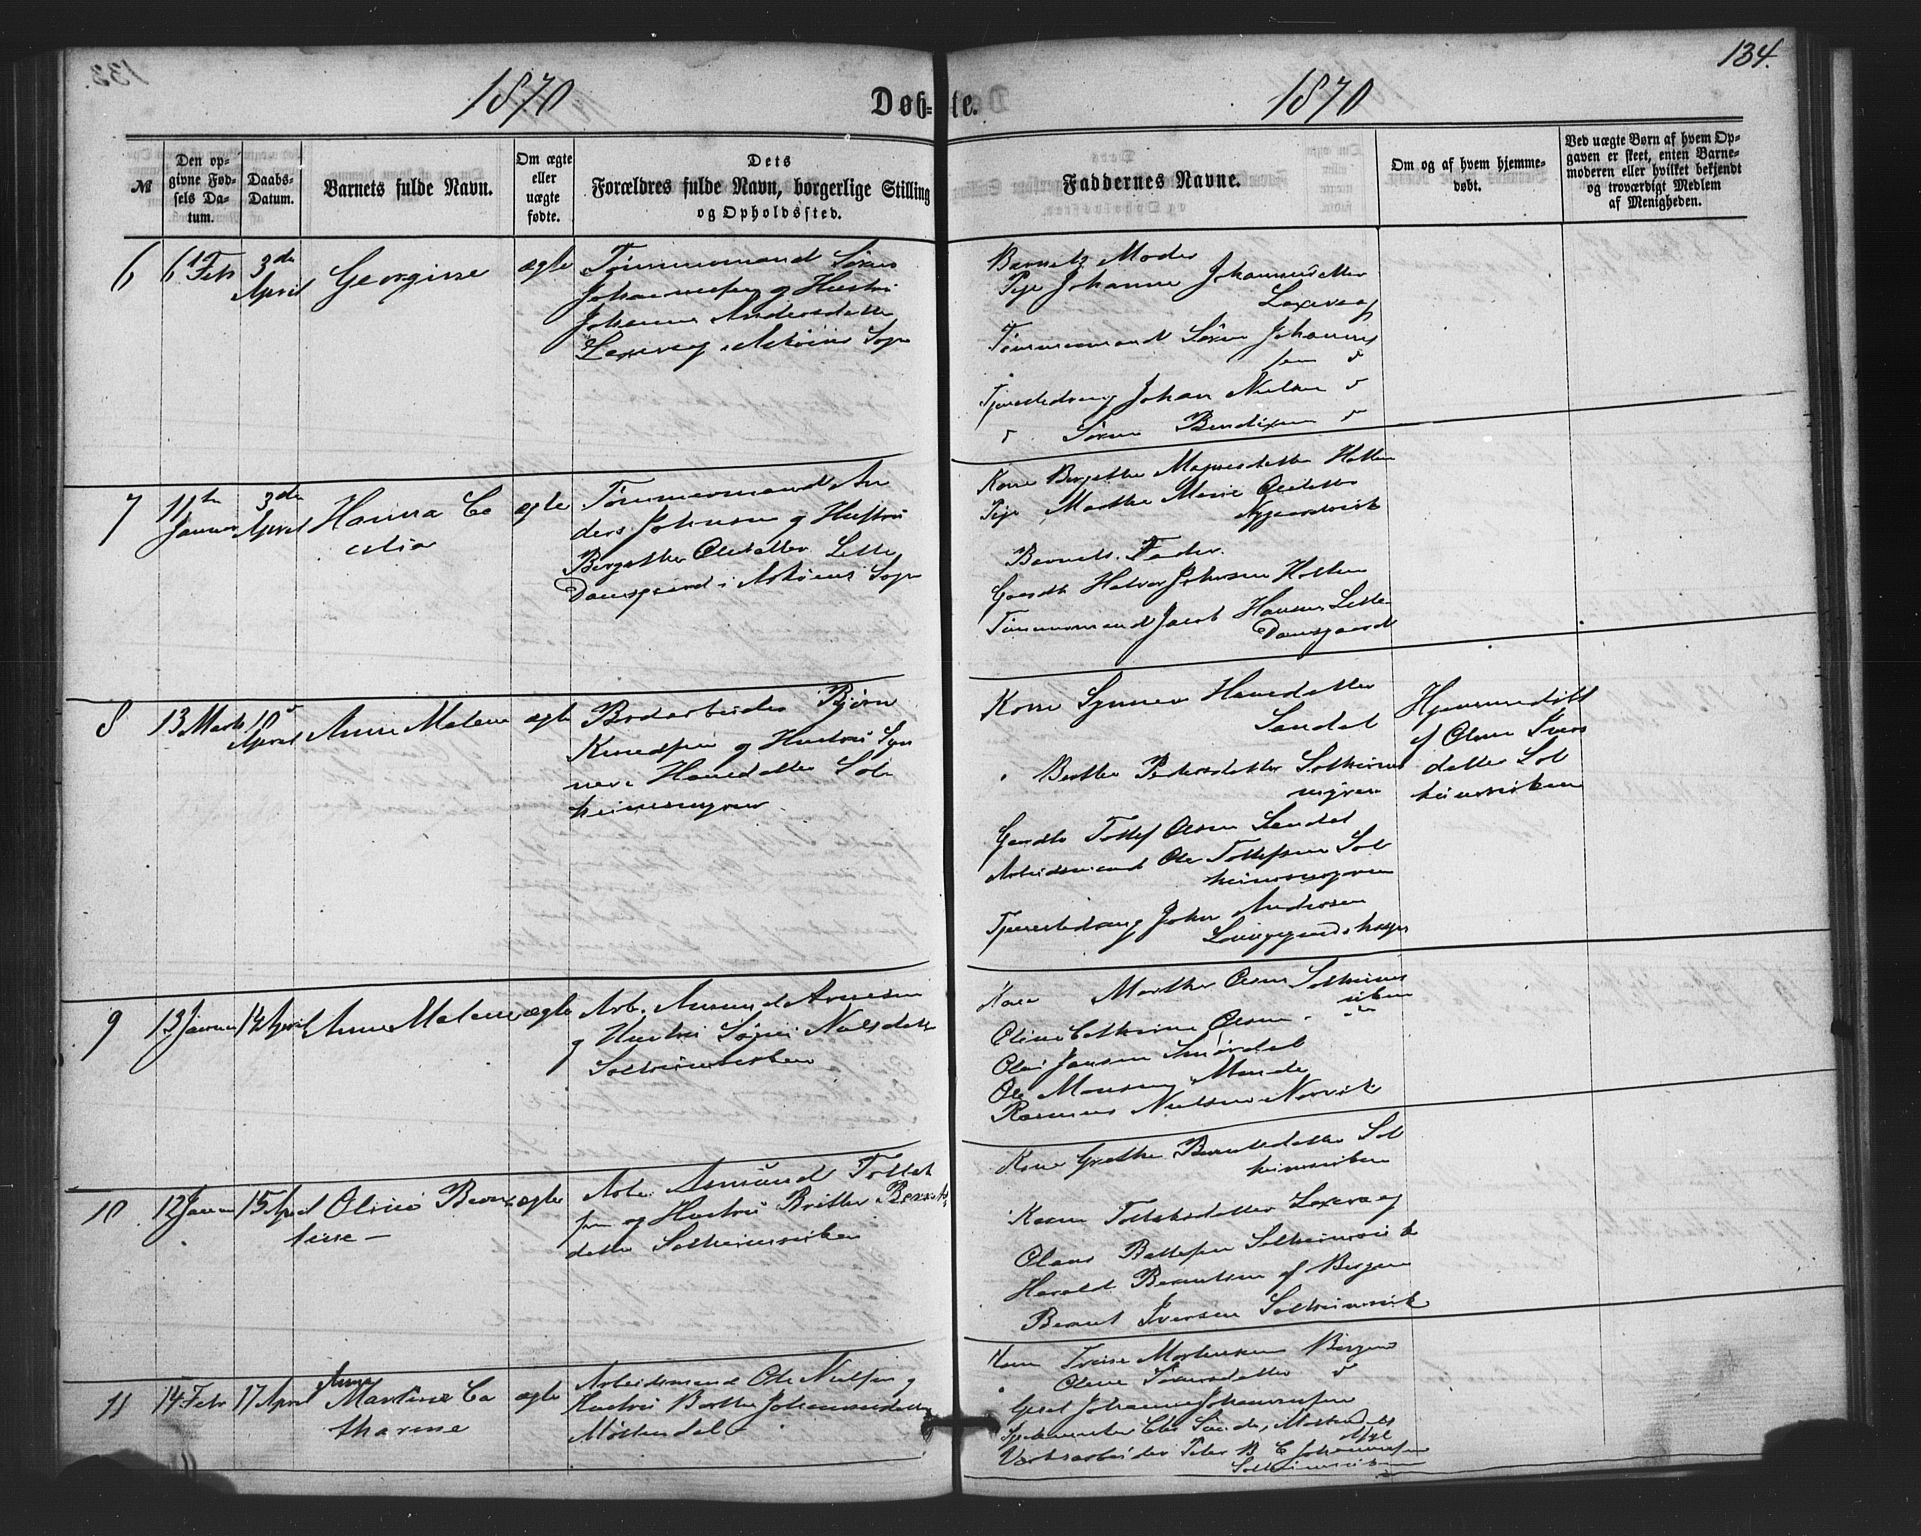 134.
1870
Døb=te.
1870
№
Den op-
givne Fød-
sels Da-
tum.
Daabs-
Datum.
Barnets fulde Navn.
Om ægte
eller
uægte
fødte.
Dets
Forældres fulde Navn, borgerlige Stilling
og Opholdssted.
Faddernes Navne.
Om og af hvem hjemme-
døbt.
Ved uægte Børn af hvem Op-
gaven er skeet, enten Barne-
moderen eller hvilket bekjendt
og troværdigt Medlem
af Menigheden.
6
6 Febr
3de
April
Georgine
ægte
Tømmermand Søren
Johannesen og Hustru
Johanne Andersdatter
Laxevaag i Askøens Sogn
Barnets Moder
Pige Johanne Johannesdatter
Laxevaag
Tømmermand Søren Johannes
sen
Tjenestedreng Johan Nielsen
Søren Bendixen
7
11te
Januar
3de
April
Hanna Ce
cilia
ægte
Tømmermand An
ders Johnsen og Hustru
Bergitha Olesdatter Lille
Damsgaard i Askøens Sogn
Kone Bergitha Magnesdatter Holten
Pige Marthe Marie Olesdatter
Nygaardsvik
Barnets Fader
Gaardb Halvor Johnsen Holten
Tømmermand Jacob Hansen Lille
Damsgaard
8
13 Marts
10
April
Anne Malene
ægte
Bodarbeider Bjørn
Knudsen og Hustru Syn
neve Hansdatter Sol
heimsmyren
Kone Synneve Hansdatter
Sandal
Berthe Pedersdatter Solheims
myren
Gaardb Tollef Olsen Sandal
Arbeidsmand Ole Tollefsen Sol
heimsmyren
Tjenestedreng John Andersen
Løvgaardshougen
Hjemmedøbt
af Oline Ivers
datter Sol
heimsviken
9
13 Januar
14 April
Anne Malene
ægte
Arb. Amund Arnesen
og Hustru Søgni Nielsdatter
Solheimsviken
Kone Marthe Olsen Solheims
viken
Oline Cathrine Olsen
Ole Jansen Smørdal
Ole Monsen Minde
Rasmus Nielsen Norvik
10
12 Januar
15 April
Oline Bern
tine
ægte
Arb. Asmund Tollak
sen og Hustru Brithe Bernts
datter Solheimsviken
Kone Grethe Berntsdatter Sol
heimsviken
Karen Tollaksdatter Laxevaag
Claus Solheimsvik
Harald Berntsen af Bergen
Bernt Iversen Solheimsvik
11
14 Febr
17 April
Anne
Martine Ca
tharine
ægte
Arbeidsmand Ole Nielsen og
Hustru Berthe Johannesdatter
Møllendal
Kone Mortensen Bergen
Oline
Johannessen
Værksarbeider Peter B C Johannesen
Solheimsviken